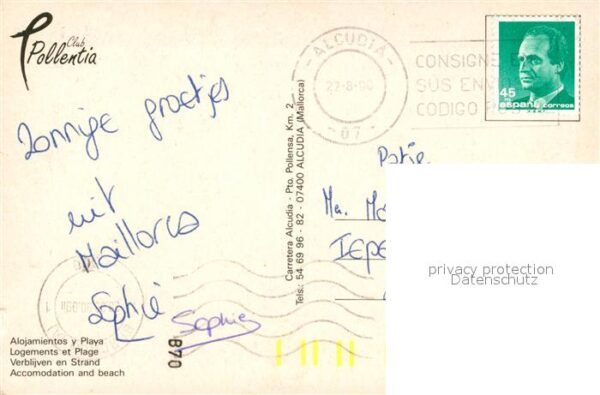 Club
Pollentia
Zonnige groetjes
uit
Maillorca
Sophie
Sophie
Alojamientos y Playa
Logements et Plage
Verblijven en Strand
Accomodation and beach
870
Carretera Alcudia - Pto. Pollensa, Km. 2
Tels.: 54 69 96 - 82 - 07400 ALCUDIA (Mallorca)
- ALCUDIA -
22-8-90
- 07 -
CONSIGNE E
SUS ENVIO
CODIGO
45
españa correos
Ma.
IEPE
privacy protection
Datenschutz